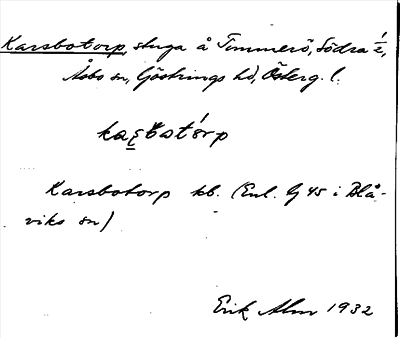 Karsbotorp, stuga å Timmerö, Södra 1/2,
Åsbo sn, Göstrings hd, Österg. l.
Karsbotorp kb. (Enl. G 45 i Blå-
viks sn)
Erik Alm 1932